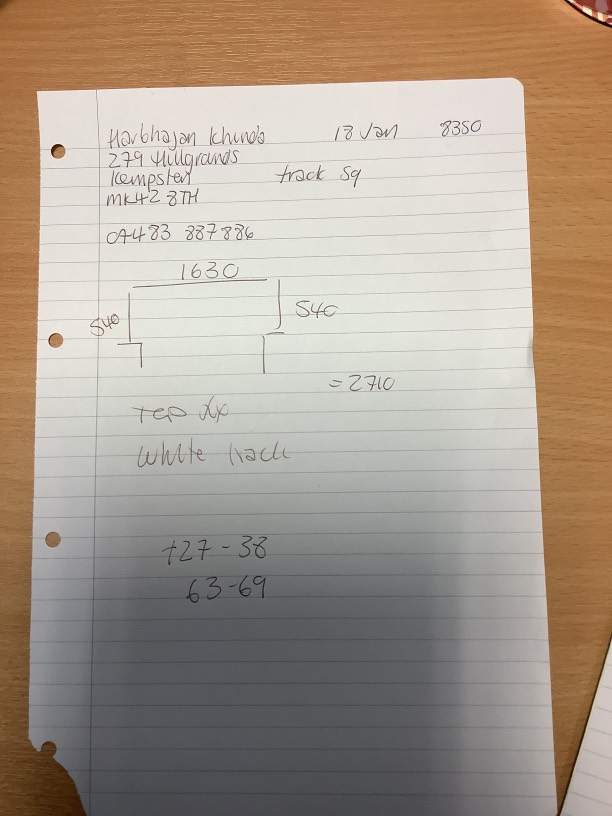 Harbhajan Khinda 18 Jan 8350
279 Hillgrands
Kempsten track sq
MK42 8TH
07483 887886
1630
540 540
= 2710
Top
white track
+27-38
63-69